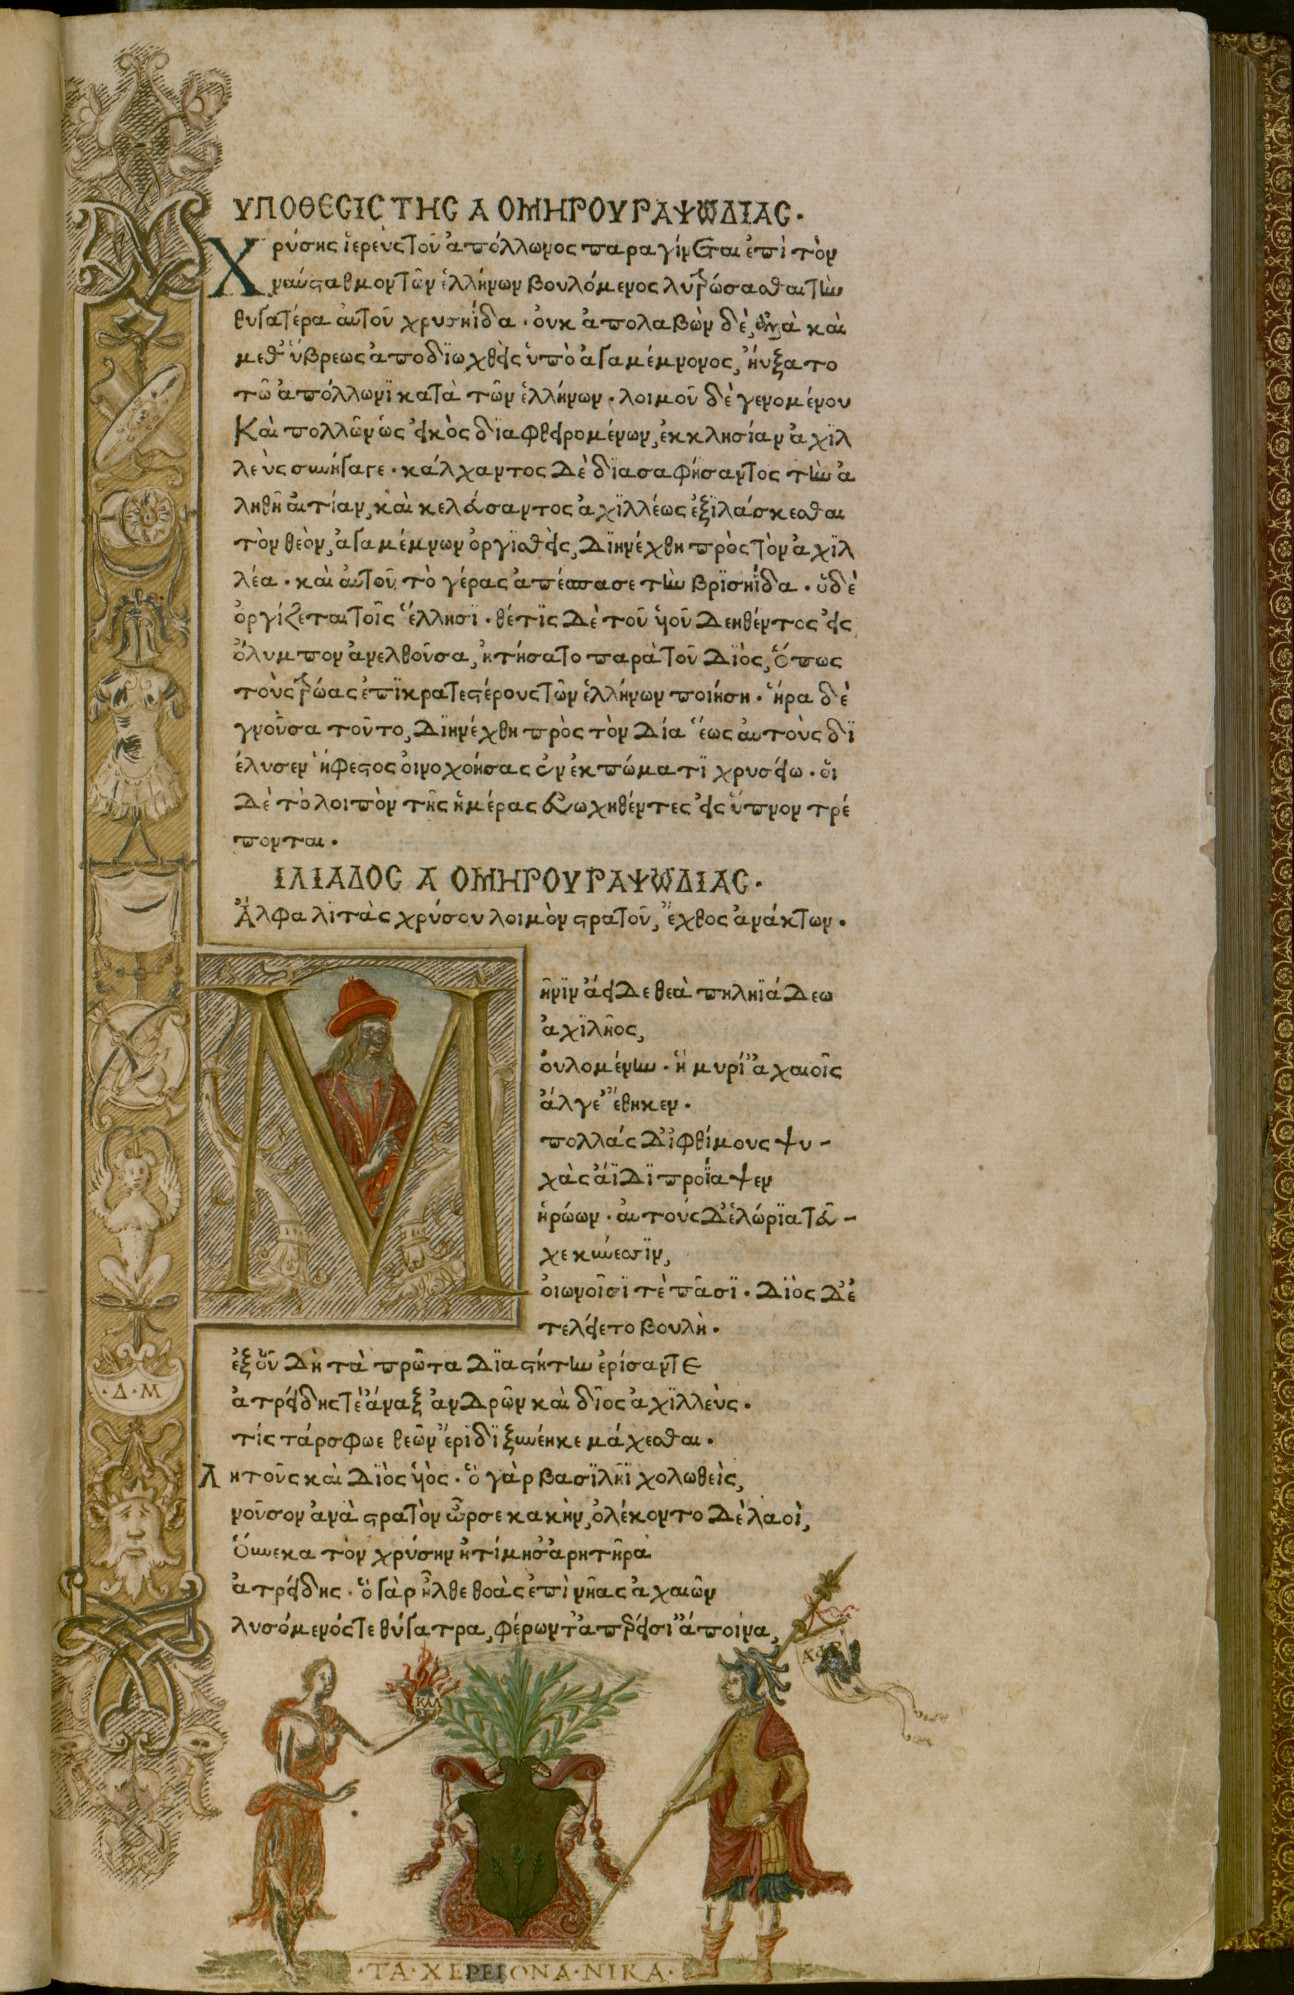 ΥΠΟΘΕCΙC ΤΗC Α ΟΜΗΡΟΥ ΡΑΨΩΔΙΑC.
Χρύσης ἱερεὺς τοῦ ἀπόλλωνος παραγίνεται ἐπὶ τὸν
ναύσταθμον τῶν ἑλλήνων βουλόμενος λυτρώσασθαι τὴν
θυγατέρα αὐτοῦ χρυσηΐδα. ὀυκ ἀπολαβὼν δὲ, ἀλλὰ καὶ
μεθ' ὕβρεως ἀποδϊωχθεὶς ὑπὸ ἀγαμέμνονος, ἠύξατο
τῶ ἀπόλλωνϊ κατὰ τῶν ἑλλήνων. λοιμοῦ δὲ γενομένου
Καὶ πολλῶν ὡς εἰκὸς δϊαφθειρομένων, ἐκκλησίαν ἀχϊλ
λεὺς συνήγαγε. κάλχαντος δὲ δϊασαφήσαντος τὴν ἀ
ληθῆ αἰτίαν, καὶ κελεύσαντος ἀχϊλλέως ἐξϊλάσκεσθαι
τὸν θεὸν, ἀγαμέμνων ὀργϊσθεὶς, δϊηνέχθη πρὸς τὸν ἀχϊλ
λέα. καὶ ἀυτοῦ τὸ γέρας ἀπέσπασε τὴν βρϊσηΐδα. ὁ δὲ
ὀργίζεται τοῖς ἕλλησϊ. θέτϊς δὲ τοῦ ὑοῦ δεηθέντος εἰς
ὄλυμπον ἀνελθοῦσα, ἠτήσατο παρὰ τοῦ Δϊὸς, ὅπως
τοὺς τρώας ἐπϊκρατεστέρους τῶν ἑλλήνων ποιήση. ἥρα δὲ
γνοῦσα τοῦτο, δϊηνέχθη πρὸς τὸν Δία ἕως ἀυτοὺς δϊ
έλυσεν ἥφεστος ὀινοχοήσας ἐν ἐκπώματϊ χρυσείω. ὁι
δὲ τὸ λοιπὸν τῆς ἡμέρας εὐωχηθέντες εἰς ὕπνον τρέ
πονται.
ΙΛΙΑΔΟC Α ΟΜΗΡΟΥ ΡΑΨΩΔΙΑC.
Ἄλφα λϊτὰς χρύσου λοιμὸν στρατοῦ, ἔχθος ἀνάκτων.
Μ
ῆνϊν ἄειδε θεὰ πηληϊάδεω
ἀχϊλῆος,
ὀυλομένην. ἣ μυρί' ἀχαιοῖς
ἄλγε' ἔθηκεν.
πολλάς δ' ἰφθίμους ψυ-
χὰς ἄϊδϊ προΐαψεν
ἡρώων. ἀυτούς δ' ἑλώρϊα τεῦ-
χε κύνεσσϊν,
ὀιωνοῖσϊ τὲ πᾶσϊ. Δϊὸς δ' ἐ
τελείετο βουλὴ.
ἐξ οὗ δὴ τὰ πρῶτα δϊαστήτην ἐρίσαντε
ἀτρείδης τὲ ἄναξ ἀνδρῶν καὶ δῖος ἀχϊλλεὺς.
τίς τάρ σφωε θεῶν ἔριδϊ ξυνέηκε μάχεσθαι.
Λητοῦς καὶ Δϊὸς ὑὸς. ὁ γὰρ βασϊλῆϊ χολωθεὶς,
νοῦσον ἀνὰ στρατὸν ὦρσε κακὴν, ὀλέκοντο δὲ λαοὶ,
Ὅυνεκα τὸν χρύσην ἠτίμησ' ἀρητῆρα
ἀτρείδης. ὁ γὰρ ἦλθε θοὰς ἐπὶ νῆας ἀχαιῶν
λυσόμενός τε θύγατρα, φέρων τ' ἀπερείσι' ἄποινα,
·Δ·Μ
ΚΑΛ
·ΤΑ·ΧΕΡΕΙΟΝΑ·ΝΙΚΑ·